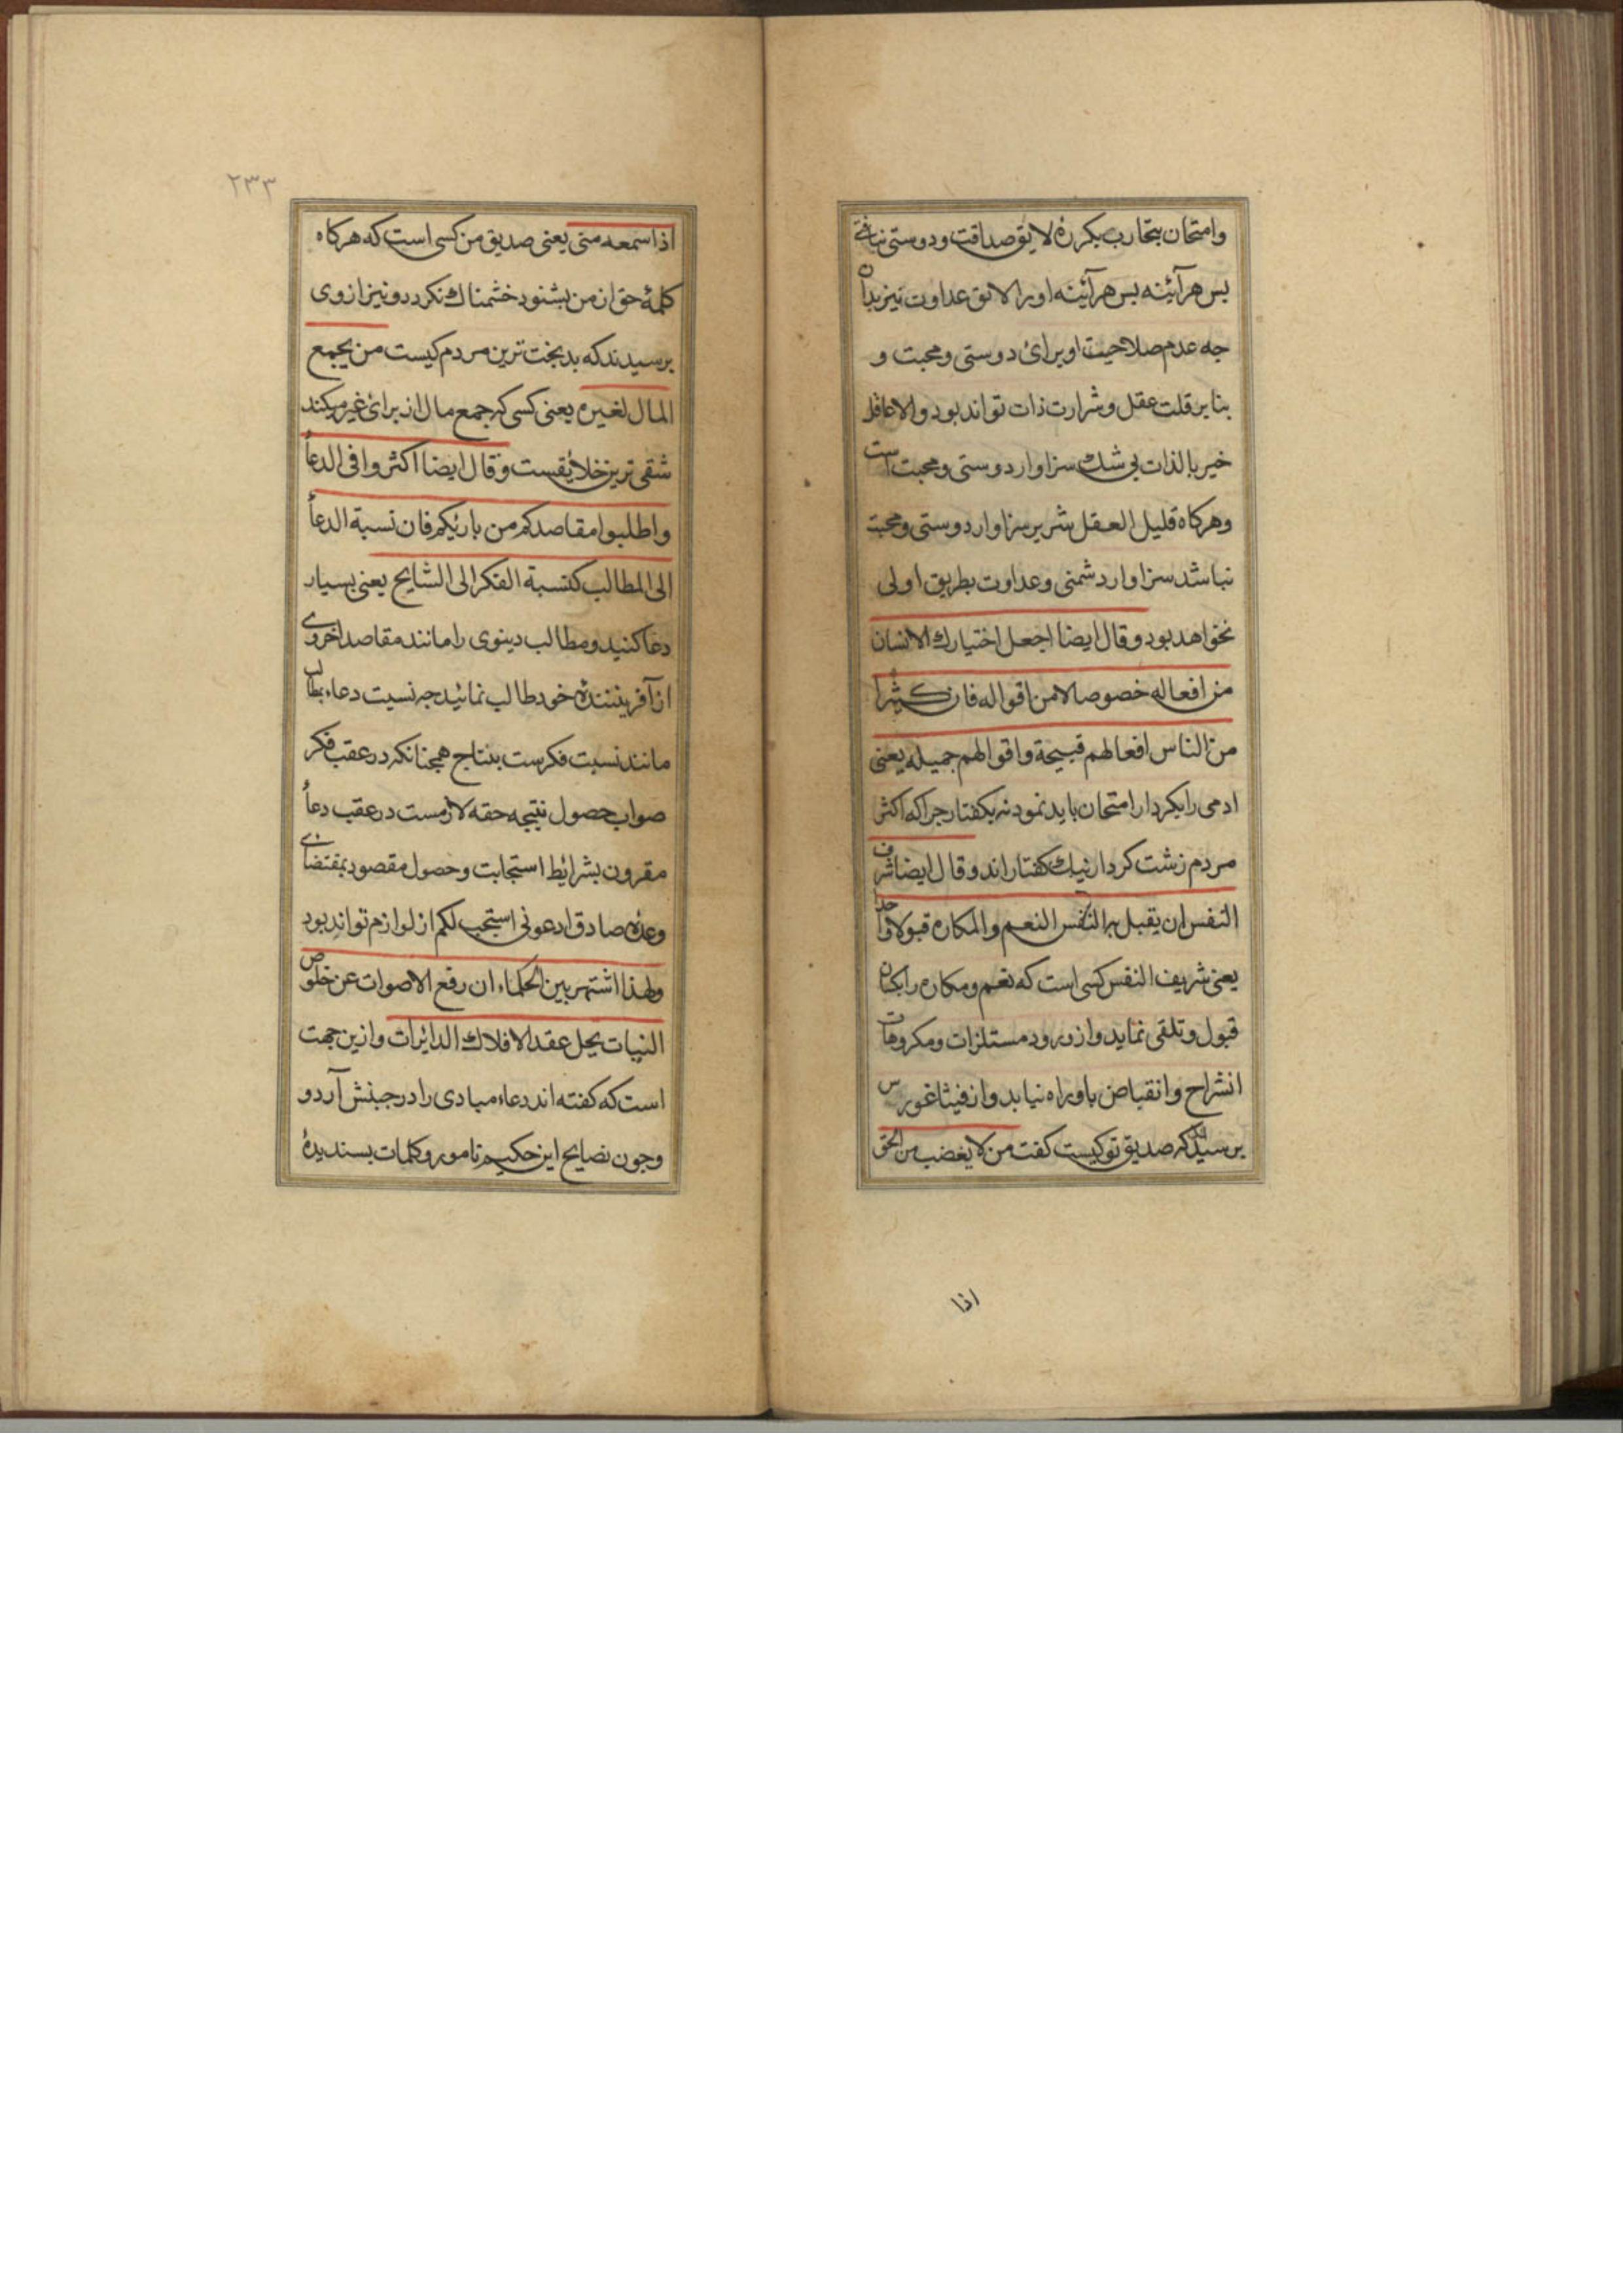 وامتحان بتجارب بکرره لایق صداقت ودوستی نیافتی
بس هرآئینه بس هرآئینه اورا لایق عداوت نیز بدان
جه عدم صلاحیت او برای دوستی ومحبت و
بنابر قلت عقل وشرارت ذات تواند بود والا عاقل
خیر بالذات بی شك سزاوار دوستی ومحبت است
وهرکاه قلیل العقل شریر سزاوار دوستی ومحبت
نباشد سزاوار دشمنی وعداوت بطریق اولی
نخواهد بود وقال ایضا اجعل اختیارك الانسان
من افعاله خصوصا لا من اقواله فان کثیرا
من الناس افعالهم قبیحة واقوالهم جمیله یعنی
ادمی را بکردار امتحان باید نمود نه بکفتار جراکه اکثر
مردم زشت کردار نیك کفتار اند وقال ایضا شرف
النفس ان یقبل بها النفس النعم والمکاره قبولا واحدا
یعنی شریف النفس کسی است که نعم ومکاره را یکسان
قبول وتلقی نماید واز ورود مستلزات ومکروهات
انشراح وانقباض باو راه نیابد واز فیثاغورس
برسیدند که صدیق تو کیست کفت من لا یغضب من الحق
اذا
٢٣٣
اذا سمعه منی یعنی صدیق من کسی است که هرکاه
کلمهٔ حق از من بشنود خشمناك نکردد ونیز از وی
برسیدند که بدبخت ترین مردم کیست من یجمع
المال لغیره یعنی کسی که جمع مال از برای غیر میکند
شقی ترین خلایقست وقال ایضا اکثروا فی الدعأ
واطلبوا مقاصدکم من بارئکم فان نسبة الدعأ
الی المطالب کنسبة الفکر الی النتایج یعنی بسیار
دعا کنید ومطالب دینوی را مانند مقاصد اخروی
از آفریننندهٔ خود طالب نمائید جه نسبت دعاء بمطالب
مانند نسبت فکرست بنتاج همجنانکه در عقب فکر
صواب حصول نتیجه حقه لازمست در عقب دعأ
مقرون بشرایط استجابت وحصول مقصود بمقتضای
وعدهٔ صادق ادعونی استجب لکم از لوازم تواند بود
ولهذا اشتهر بین الحکماء ان رفع الاصوات عن خلوص
النیات یحل عقد الافلاك الدائرات وازین جهت
است که کفته اند دعاء مبادی را در جنبش آرد و
وجون نصایح این حکیم نامور وکلمات بسندیدهٔ